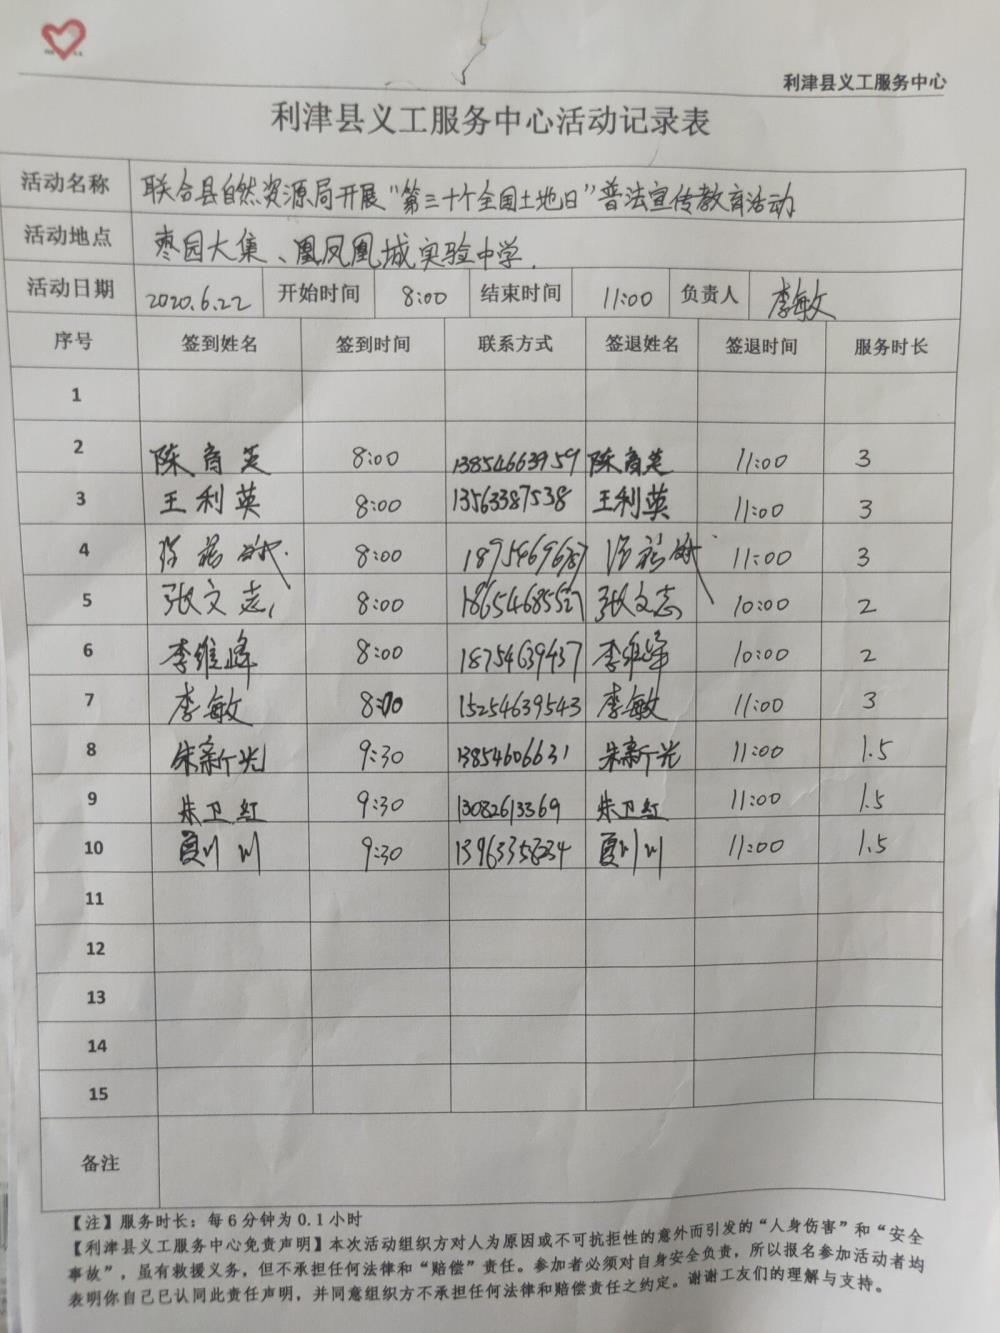 利津县义工服务中心
利津县义工服务中心活动记录表
活动名称 联合县自然资源局开展“第三十个全国土地日”普法宣传教育活动
活动地点 枣园大集、凰凤凰城实验中学.
活动日期 2020.6.22 开始时间 8:00 结束时间 11:00 负责人 李敏
序号 签到姓名 签到时间 联系方式 签退姓名 签退时间 服务时长
1
2 陈育英 8:00 13854663959 陈育英 11:00 3
3 王利英 8:00 13563387538 王利英 11:00 3
4 8:00 11:00 3
5 张文志 8:00 张文志 10:00 2
6 李维峰 8:00 18754639437 李维峰 10:00 2
7 李敏 8:00 15254639543 李敏 11:00 3
8 朱新光 9:30 13854606631 朱新光 11:00 1.5
9 朱卫红 9:30 13082613369 朱卫红 11:00 1.5
10 9:30 11:00 1.5
11
12
13
14
15
备注
【注】服务时长：每6分钟为0.1小时
【利津县义工服务中心免责声明】本次活动组织方对人为原因或不可抗拒性的意外而引发的“人身伤害”和“安全
事故”，虽有救援义务，但不承担任何法律和“赔偿”责任。参加者必须对自身安全负责，所以报名参加活动者均
表明你自己已认同此责任声明，并同意组织方不承担任何法律和赔偿责任之约定。谢谢工友们的理解与支持。